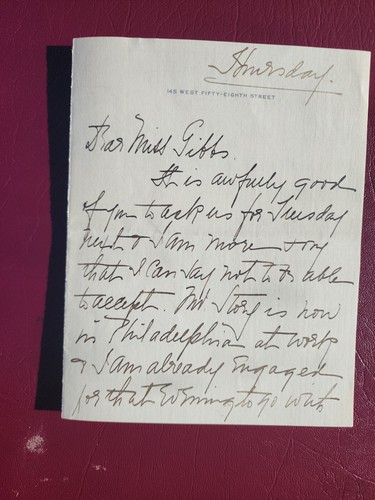 Thursday.
146 WEST FIFTY-EIGHTH STREET
Dear Miss Gibbs.
It is awfully good
of you to ask us for Tuesday
next & I am more sorry
than I can say not to be able
to accept. Mr Story is now
in Philadelphia at work
& I am already engaged
for that Evening to go with